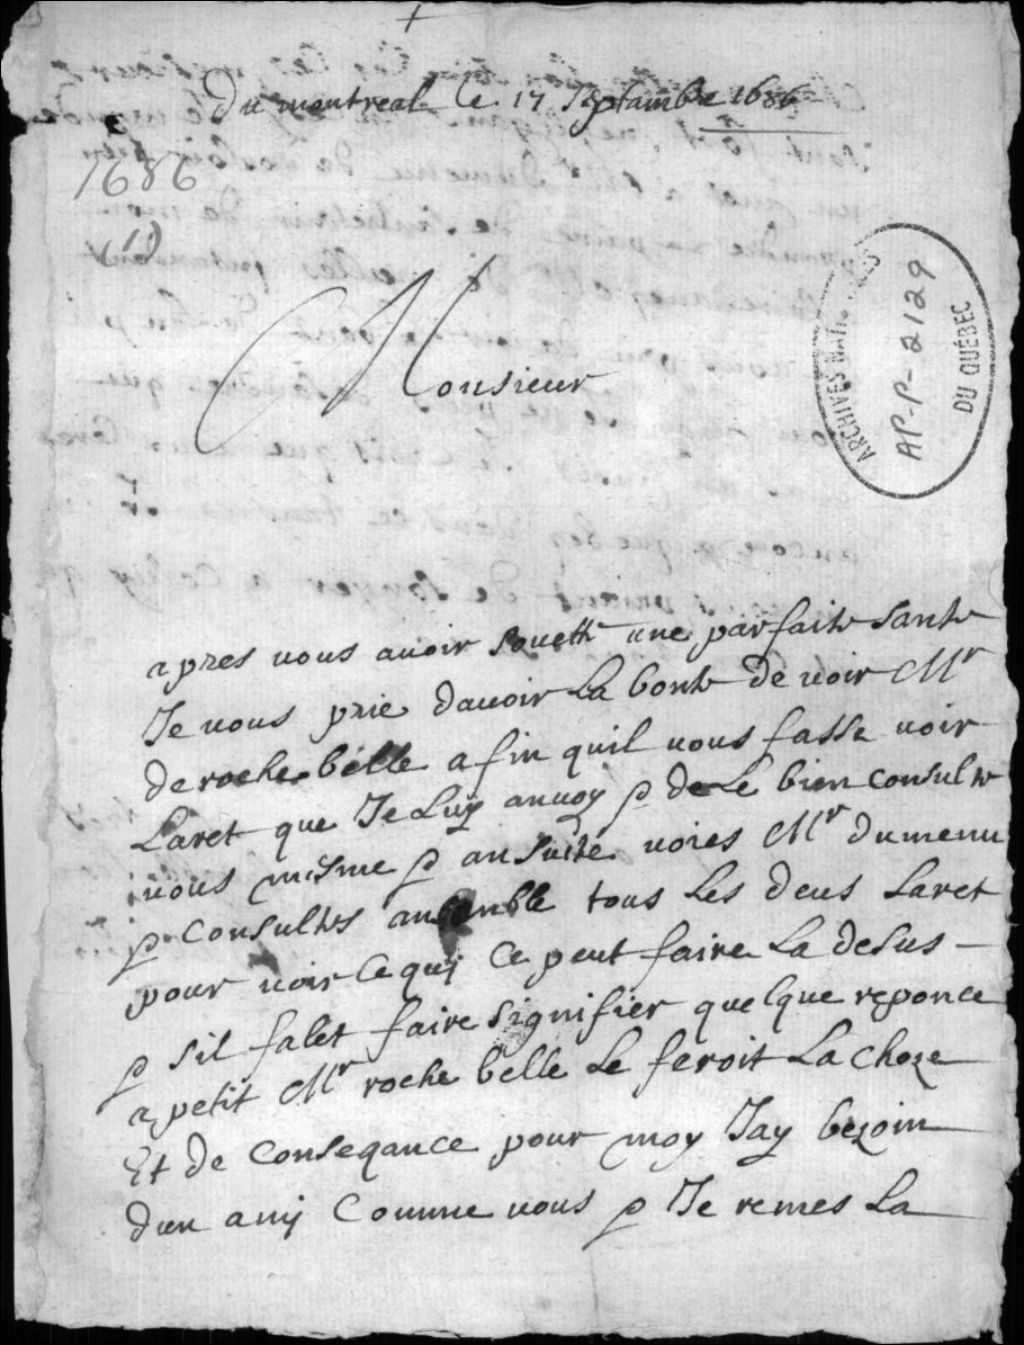 Du montreal le 17 Septambre 1686
1686
Monsieur
ARCHIVES NATIONALES
AP-P-2129
DU QUÉBEC
apres vous avoir souette une parfaite sante
Je vous prie davoir La bonte de voir Mr
de roche belle afin quil vous fasse voir
Laret que Je Luy anvoy & de Le bien consulte
vous mesme & ansuite voies Mr dumenu
& consultes ansamble tous Les deus Laret
pour voir ce qui ce peut faire La desus
& sil falet faire signifier quelque reponce
a petit Mr roche belle Le feroit La choze
Et de conseqance pour moy Jay bezoin
dun amy comme vous & Je remes La